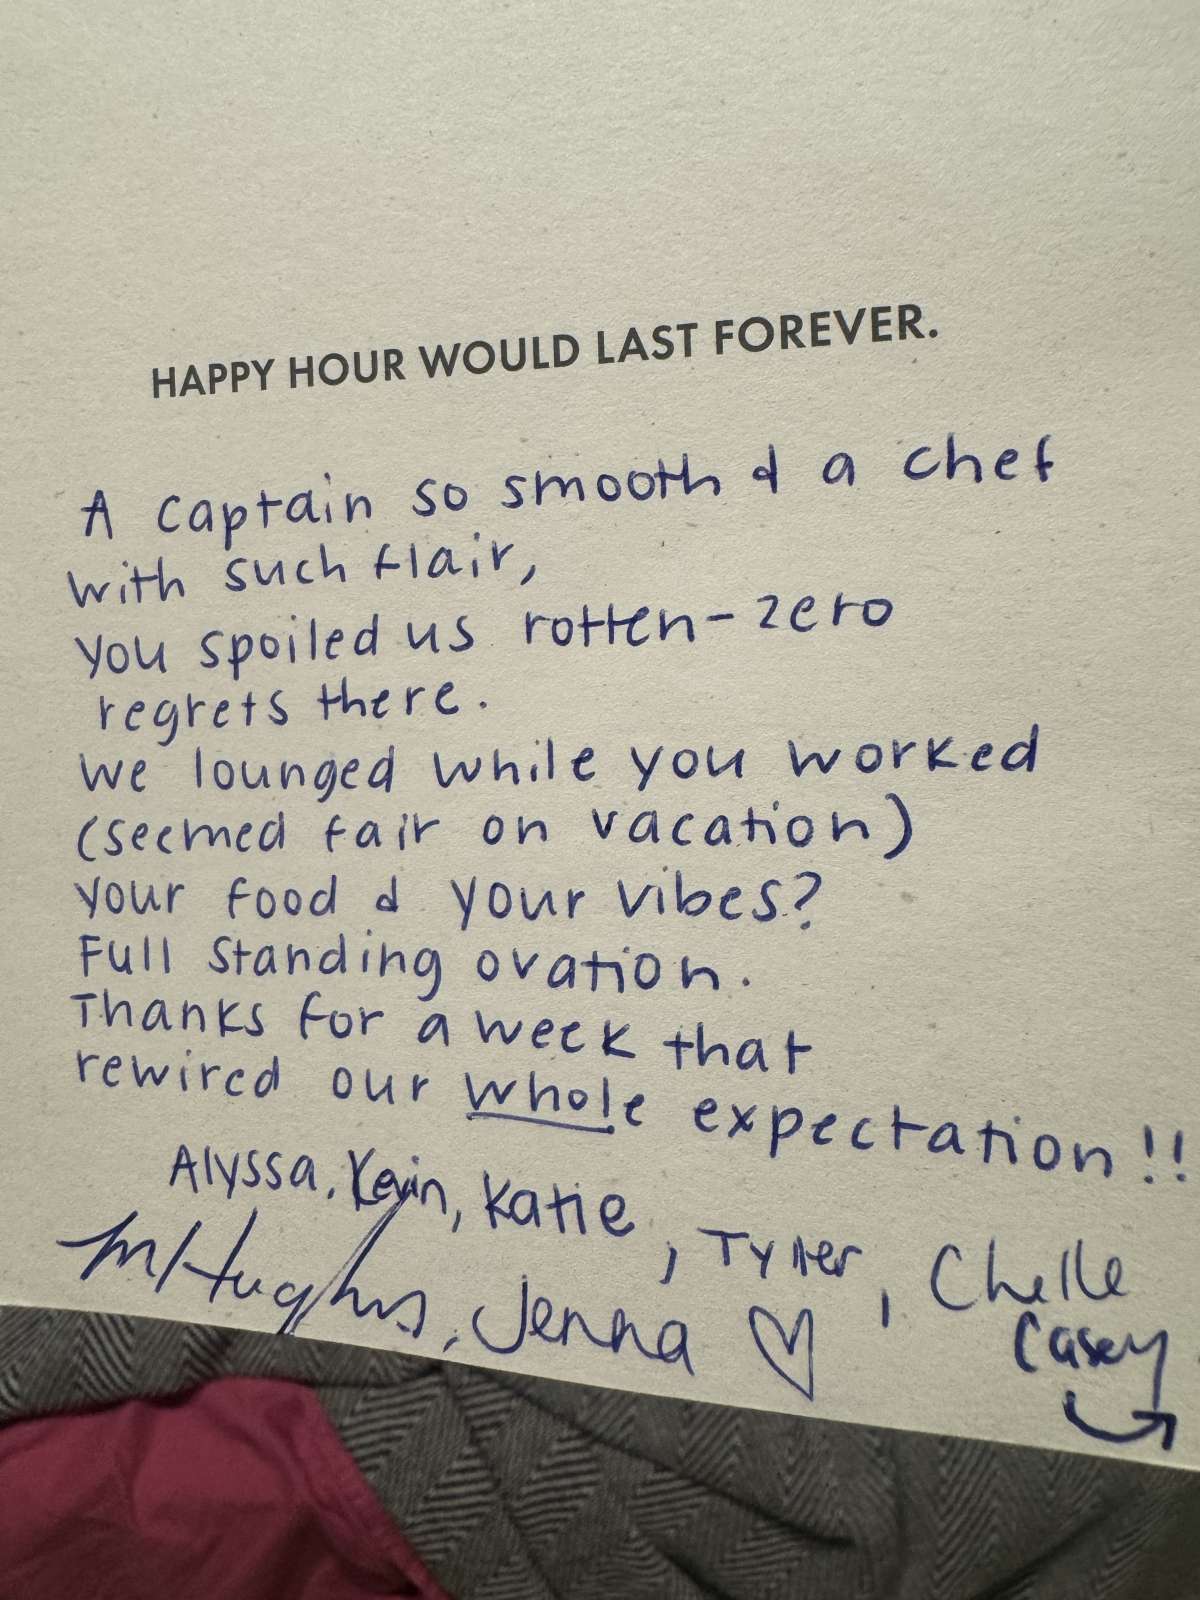 HAPPY HOUR WOULD LAST FOREVER.
A captain so smooth & a chef
with such flair,
you spoiled us rotten - zero
regrets there.
We lounged while you worked
(seemed fair on vacation)
your food & your vibes?
Full standing ovation.
Thanks for a week that
rewired our whole expectation!!
Alyssa, Kevin, Katie, Tyller, Chelle
M Hughes, Jenna ♡ Casey